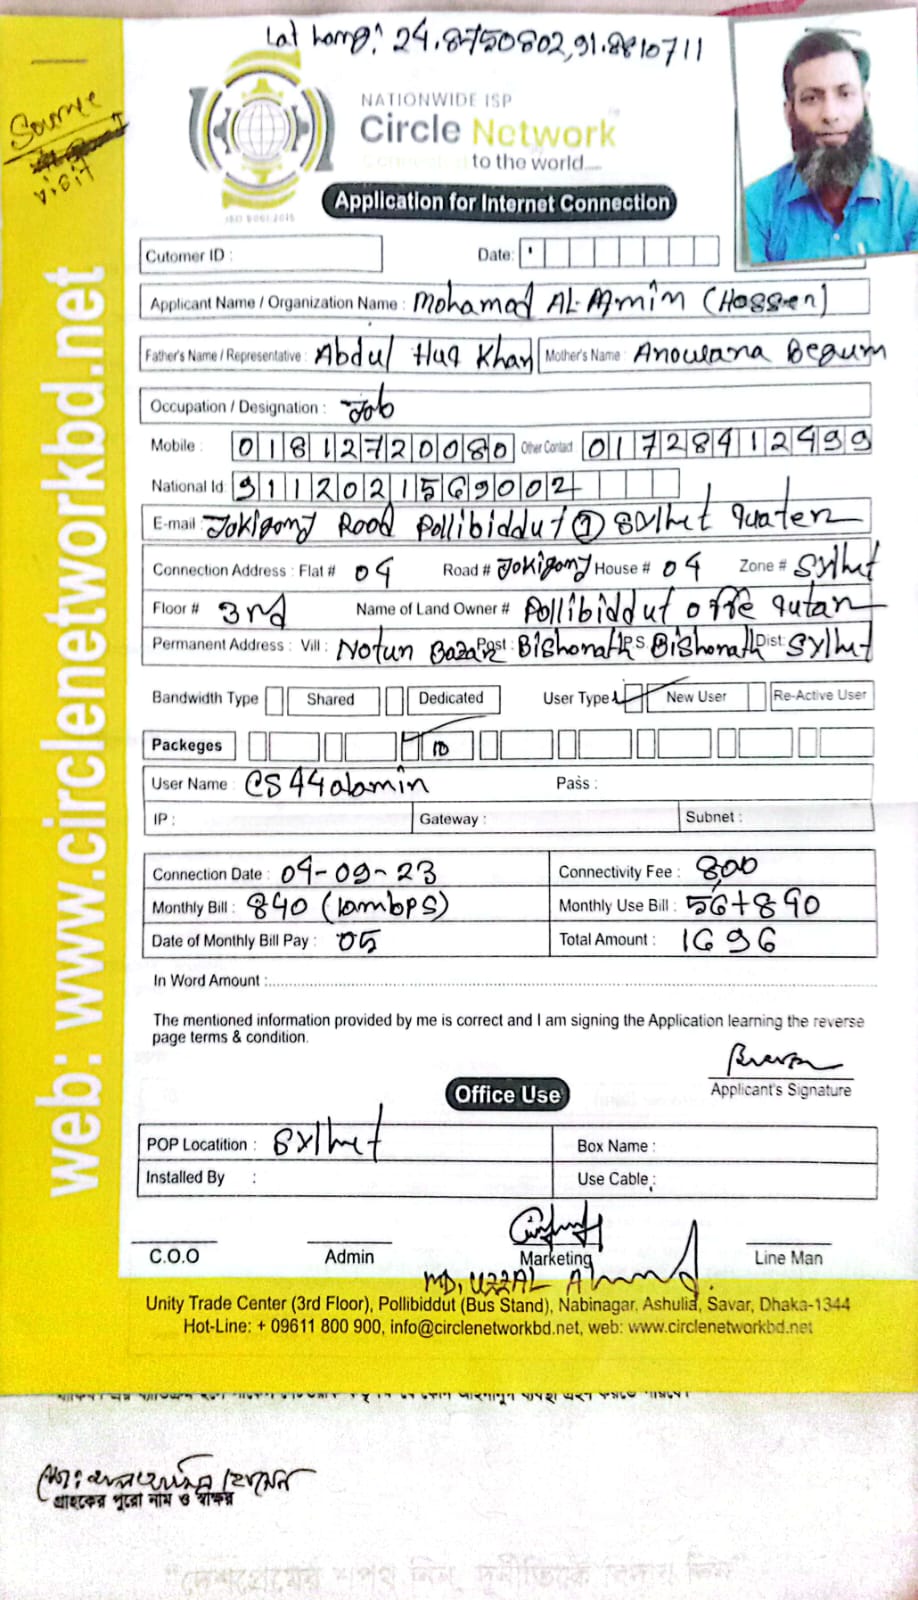 Lat Long: 24.8750802,91.8810711
Source
visit
NATIONWIDE ISP
Circle Network
to the world....
ISO 9001:2015
Application for Internet Connection
Cutomer ID :
Date:
Applicant Name / Organization Name : Mohamad AL-Amin (Hossen)
Father's Name / Representative : Abdul Huq Khan Mother's Name : Anowara Begum
Occupation / Designation : Job
Mobile : 01812720080 Other Contact 01728412499
National Id: 9112021569002
E-mail : Jokigonj Road Pollibiddut 1 Sylhet quater
Connection Address : Flat # 04 Road # Jokigonj House # 04 Zone # Sylhet
Floor # 3rd Name of Land Owner # Pollibiddut offie qutar
Permanent Address : Vill : Notun Bazar Post : Bishonath P.S. Bishonath Dist: Sylhet
Bandwidth Type Shared Dedicated User Type New User Re-Active User
Packeges 10
User Name : CS44alamin Pass :
IP : Gateway : Subnet :
Connection Date : 04-09-23 Connectivity Fee : 800
Monthly Bill : 840 (10mbps) Monthly Use Bill : 56+840
Date of Monthly Bill Pay : 05 Total Amount : 1696
In Word Amount :
The mentioned information provided by me is correct and I am signing the Application learning the reverse
page terms & condition.
Applicant's Signature
Office Use
POP Locatition : Sylhet Box Name :
Installed By : Use Cable :
C.O.O Admin Marketing Line Man
MD, UZZAL Ahmed.
Unity Trade Center (3rd Floor), Pollibiddut (Bus Stand), Nabinagar, Ashulia, Savar, Dhaka-1344
Hot-Line: + 09611 800 900, info@circlenetworkbd.net, web: www.circlenetworkbd.net
web: www.circlenetworkbd.net
মো: আল আমিন হোসেন
গ্রাহকের পুরো নাম ও স্বাক্ষর
"দেশপ্রেমের শপথ নিন, দুর্নীতিকে বিদায় দিন"